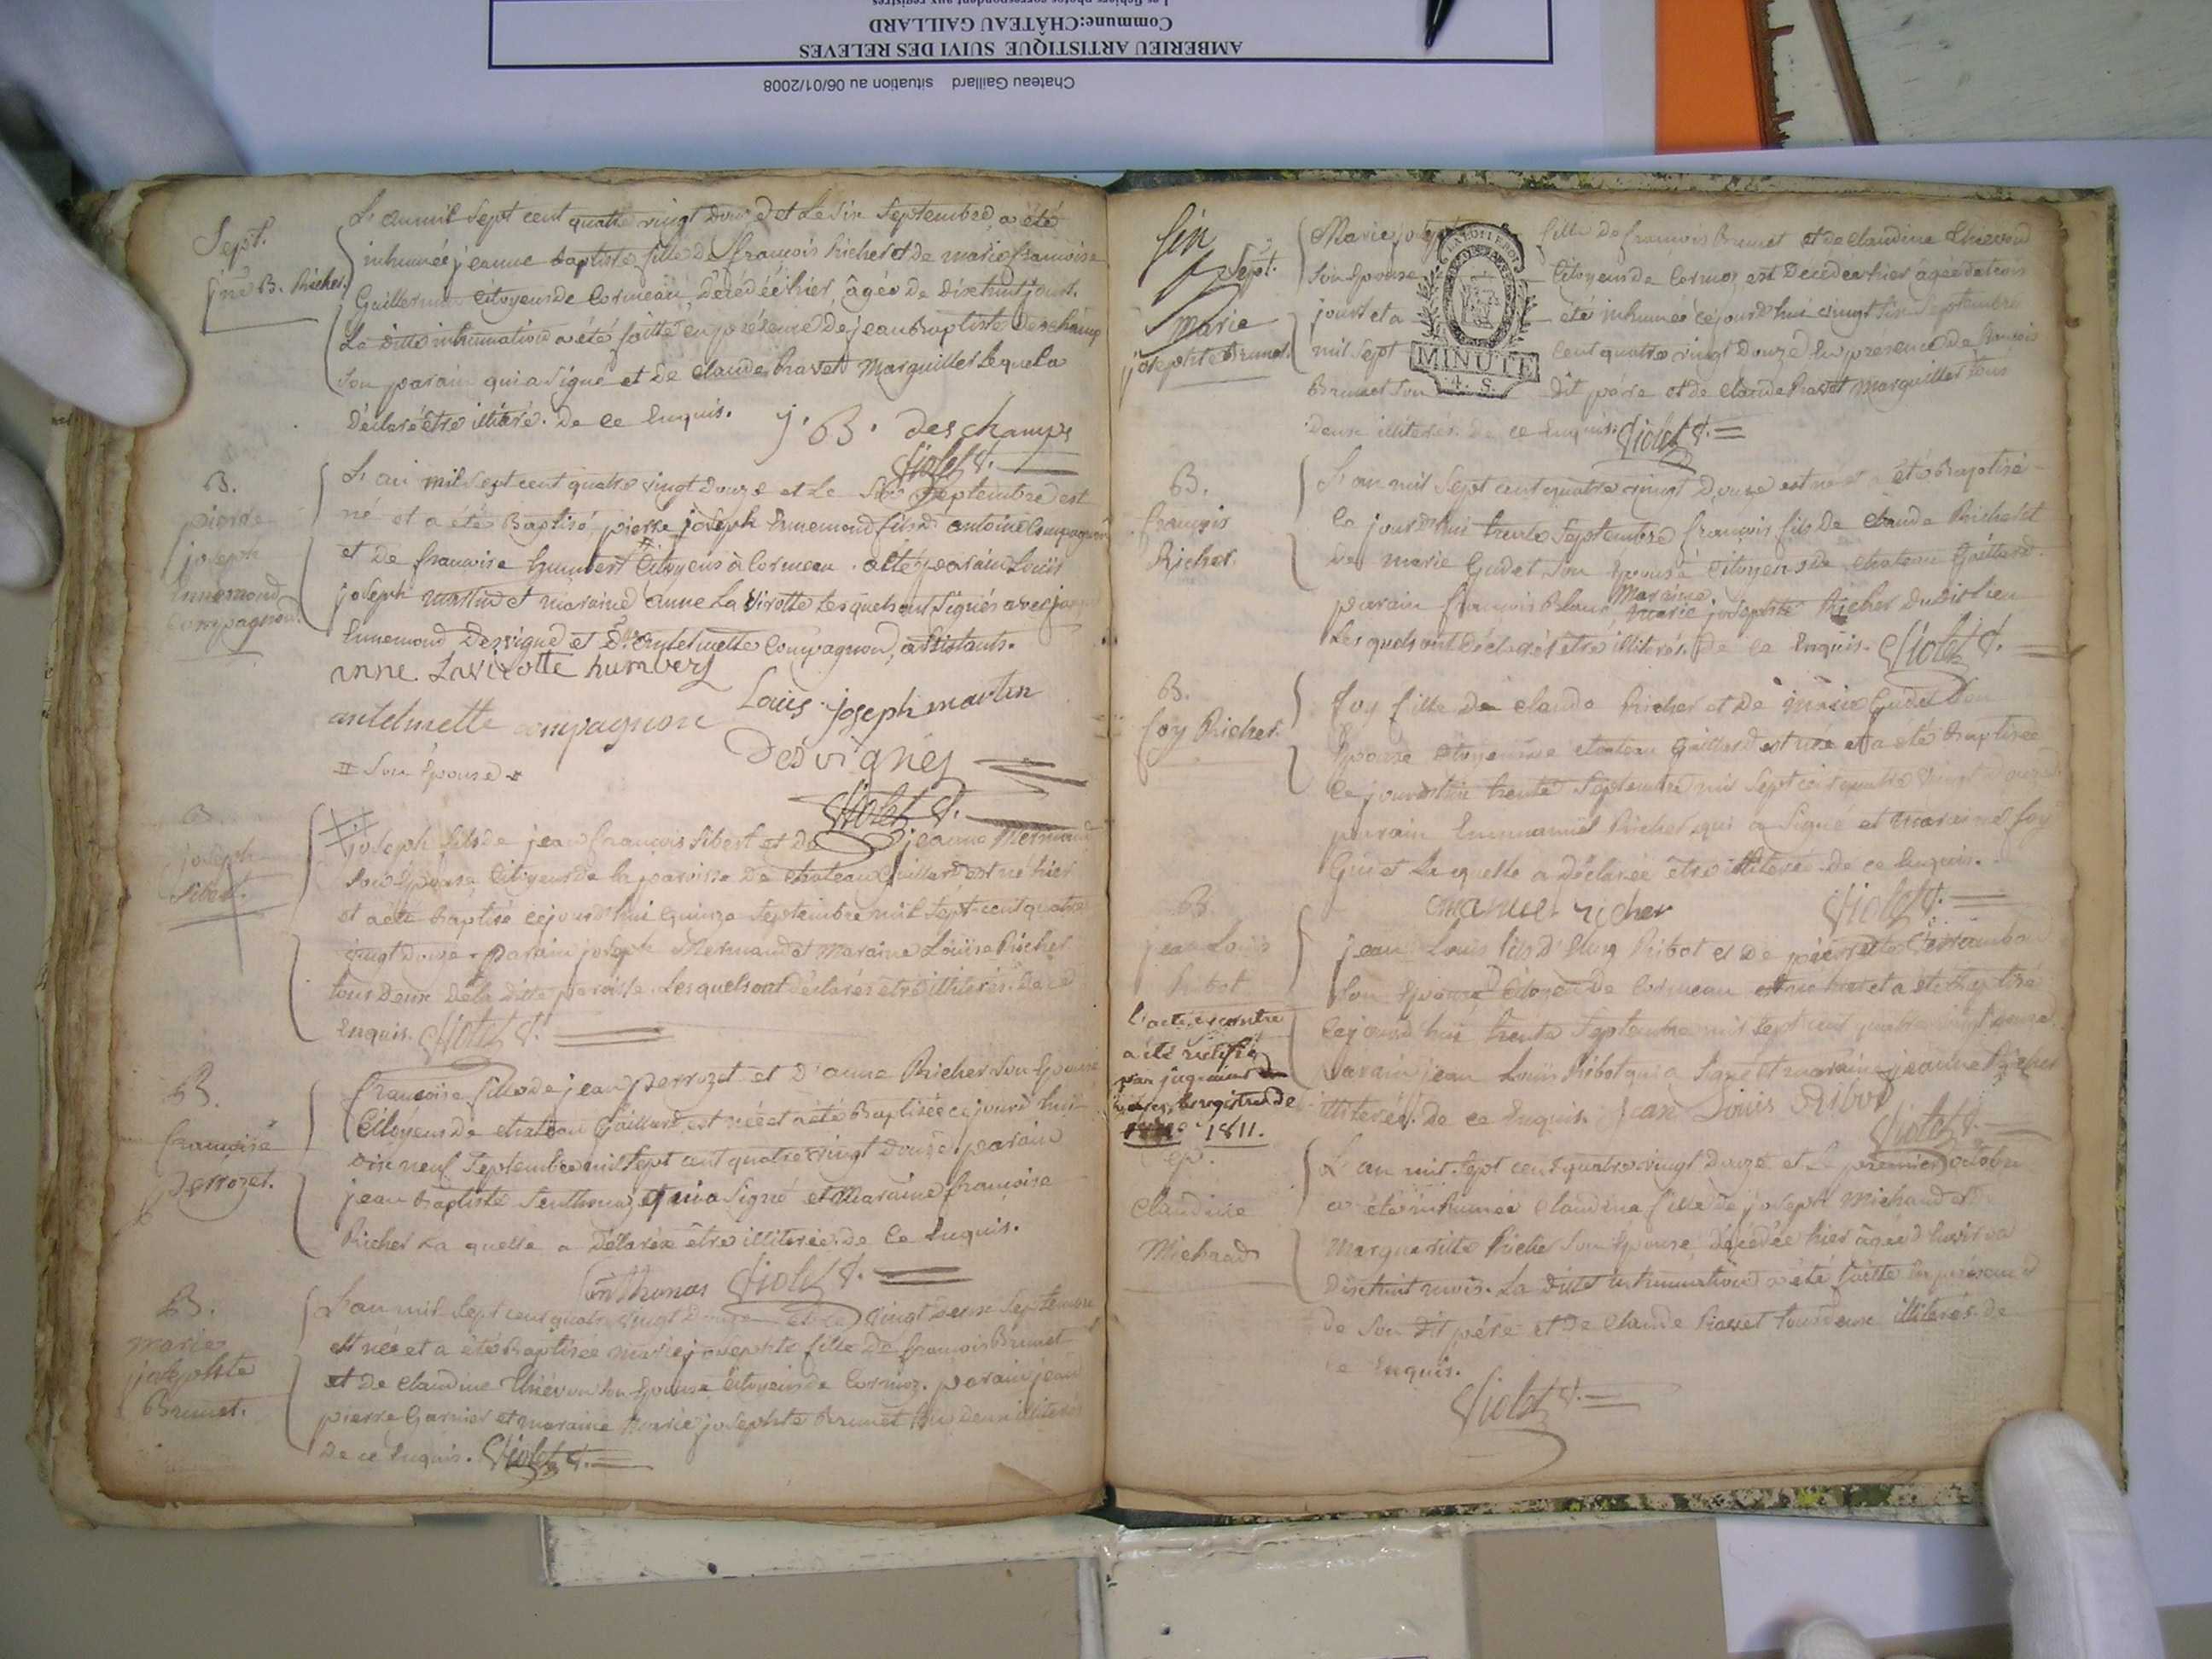 Chateau Gaillard situation au 06/01/2008
AMBERIEU ARTISTIQUE SUIVI DES RELEVES
Commune:CHÂTEAU GAILLARD
Les fichiers photos correspondent aux registres
Sept.
jne B. Richer.
L'an mil Sept cent quatre vingt douze et Le Six Septembre a été
inhumée jeanne baptiste fille de françois Richer et de marie françoise
Guillermin Citoyens de Cormeau, décédée hier, âgée de dix huit jours.
La ditte inhumation a été faitte en présence de jean Baptiste deschamp
Son parain qui a Signé et de claude Pravet Marguiller Lequel a
déclaré être illitéré. de ce Enquis.
j. B. deschamps
Violet &.
B.
pierre
joseph
Ennemond
Compagnon.
L'an mil Sept cent quatre vingt douze et Le Septembre est
né et a été Baptisé pierre joseph Ennemond fils d'antoine Compagnon
et de françoise humbert Citoyens à Cormeau. a été parain Louis
joseph martin et maraine anne La Virotte Lesquels ont Signés avec
Ennemond Desvigne et antelmette Compagnon, assistants.
anne Lavirotte humbert
Louis joseph martin
antelmette compagnon
Desvignes
Son Epouse
Violet &.
B.
joseph
Sibert.
joseph fils de jean françois Sibert et de jeanne Mermand
Son Epouse Citoyens de la paroisse de chateau Gaillard est né hier
et a été Baptisé cejourd'hui Quinze Septembre mil Sept cent quatre
vingt douze. parain joseph Mermand et Maraine Louise Richer
tous deux de la ditte paroisse. Lesquels ont déclarés être illitérés. De ce
Enquis. Violet &.
B.
françoise
perrozet.
françoise fille de jean perrozet et d'anne Richer Son Epouse
Citoyens de chateau Gaillard, est née et a été Baptisée cejourd'hui
dix neuf Septembre mil Sept cent quatre vingt douze. parain
jean Baptiste Senthonas qui a Signé et Maraine françoise
Richer La quelle a déclarée être illiterée. de Ce Enquis.
Senthonas Violet &.
B.
marie
josephte
Brunet.
L'an mil Sept cent quatre vingt douze et le vingt deux Septembre
est née et a été Baptisée marie josephte fille de françois Brunet
et de claudine Thievon Son Epouse Citoyens de Cormoz. parain jean
pierre Garnier et maraine Marie josephte Brunet tous deux illiterés
de ce Enquis. Violet &.
Sept.
Marie
josephte Brunet.
Marie fille de françois Brunet et de claudine Thievon
Son Epouse Citoyens de Cormoz est Décédée hier âgée de trois
jours et a été inhumée cejourd'hui vingt Six Septembre
mil Sept cent quatre vingt douze En presence de françois
Brunet Son dit père et de claude Pravet Marguiller tous
deux illiterés. de ce Enquis. Violet &.
MINUTE
4. S.
B.
françois
Richer.
L'an mil Sept cent quatre vingt Douze est né et a été Baptisé
ce jourd'hui trente Septembre françois fils de claude Richer et
de marie Gudet Son Epouse Citoyens de chateau Gaillard.
parain françois Blanc, Maraine marie josephte Richer dudit lieu
Lesquels ont déclarés être illiterés. De ce Enquis. Violet &.
B.
foy Richer.
foy fille de claude Richer et de marie Gudet Son
Epouse Citoyens de chateau Gaillard est née et a été Baptisée
ce jourd'hui trente Septembre mil Sept cent quatre vingt douze.
parain Emmanuel Richer qui a Signé et maraine foy
La quelle a déclarée être illiterée. de ce Enquis.
emanuel richer Violet &.
B.
jean Louis
Ribot
L'acte ci contre
a été rectifié
par jugement
1811.
jean Louis fils d' Ribot et de pierrette
Son Epouse Citoyens de Cormeau est né hier et a été Baptisé
Cejourd'hui trente Septembre mil Sept cent quatre vingt douze.
parain jean Louis Ribot qui a Signé et maraine jeanne Richer
illiterée. De ce Enquis. jean Louis Ribot
Violet &.
Sep.
Claudine
Michaud
L'an mil Sept cent quatre vingt douze et Le premier octobre
a été inhumée Claudine fille de joseph Michaud et
Margueritte Richer Son Epouse, décédée hier âgée d'environ
dix huit mois. La ditte inhumation a été faitte en présence
de Son dit père et de Claude Pravet tous deux illiterés. de
ce Enquis.
Violet &.